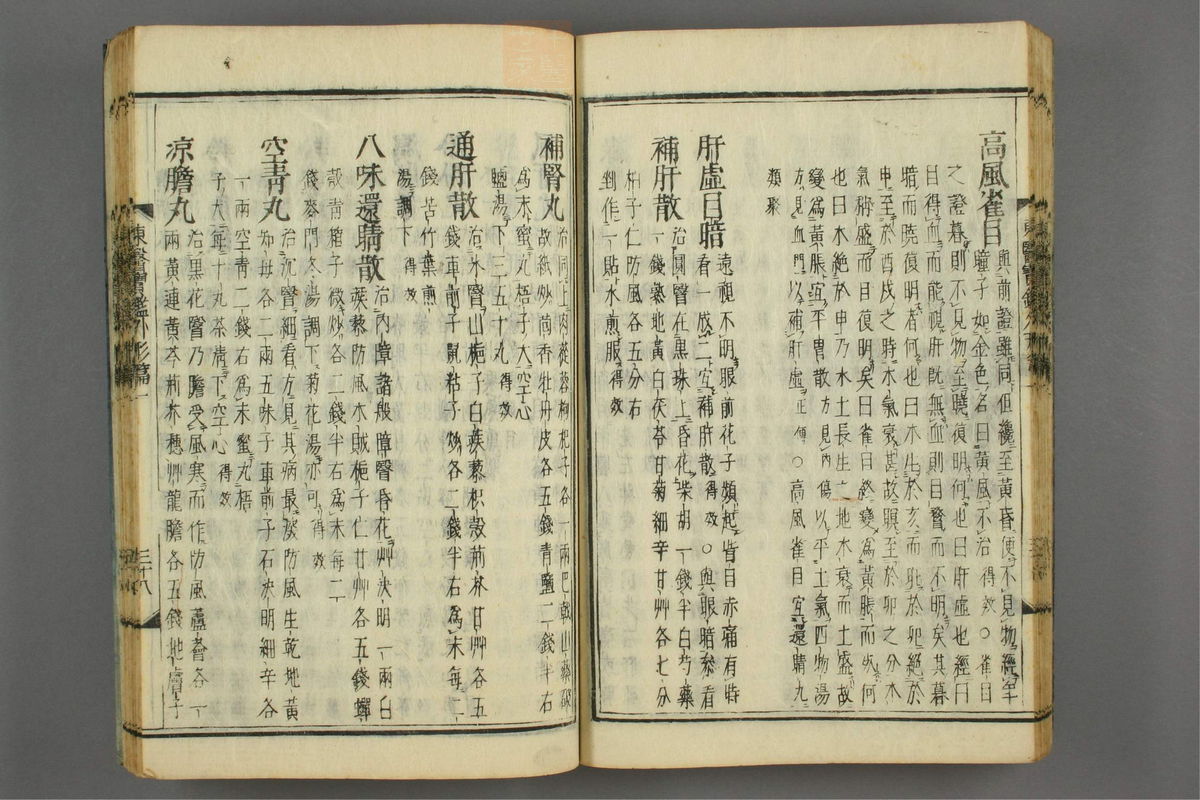 高風雀目
與前證雖同但纔至黃昏便不見物經年
瞳子如金色名曰黃風不治得效○雀目
之證暮則不見物至曉復明何也曰肝虛也經曰
目得血而能視肝旣無血則目瞖而不明矣其暮
暗而曉復明者何也曰木生於亥而旺於卯絕於
申至於酉戌之時木氣衰甚故暝至於卯之分木
氣稍盛而目復明矣曰雀目終變爲黃脹而死何
也曰木絕於申乃水土長生之地木衰而土盛故
變爲黃脹宜平胃散方見內傷以平土氣四物湯
方見血門以補肝虛正傳○高風雀目宜還睛丸
類聚
肝虛目暗
遠視不明眼前花子頻起眥目赤痛有時
看一成二宜補肝散得效○與眼暗參看
補肝散
治圓瞖在黑珠上昏花柴胡一錢半白芍藥
一錢熟地黃白茯苓甘菊細辛甘艸各七分
柏子仁防風各五分右
剉作一貼水煎服得效
補腎丸
治同上肉蓯蓉枸杞子各一兩巴戟山藥破
故紙炒茴香牡丹皮各五錢靑鹽二錢半右
爲末蜜丸梧子大空心
鹽湯下三五十丸得效
通肝散
治氷瞖山梔子白蒺藜枳殼荊芥甘艸各五
錢車前子鼠粘子炒各二錢半右爲末每二
錢苦竹葉煎
湯調下得效
八味還睛散
治內障諸般障瞖昏花艸決明一兩白
蒺藜防風木賊梔子仁甘艸各五錢蟬
殼靑箱子微炒各二錢半右爲末每二
錢麥門冬湯調下菊花湯亦可得效
空靑丸
治沉瞖細看方見其病最深防風生乾地黃
知母各二兩五味子車前子石決明細辛各
一兩空靑二錢右爲末蜜丸梧
子大每十丸茶淸下空心得效
凉膽丸
治黑花瞖乃膽受風寒而作防風蘆薈各一
兩黃連黃芩荊芥穗艸龍膽各五錢地膚子
東醫寶鑑外形篇一
三十八